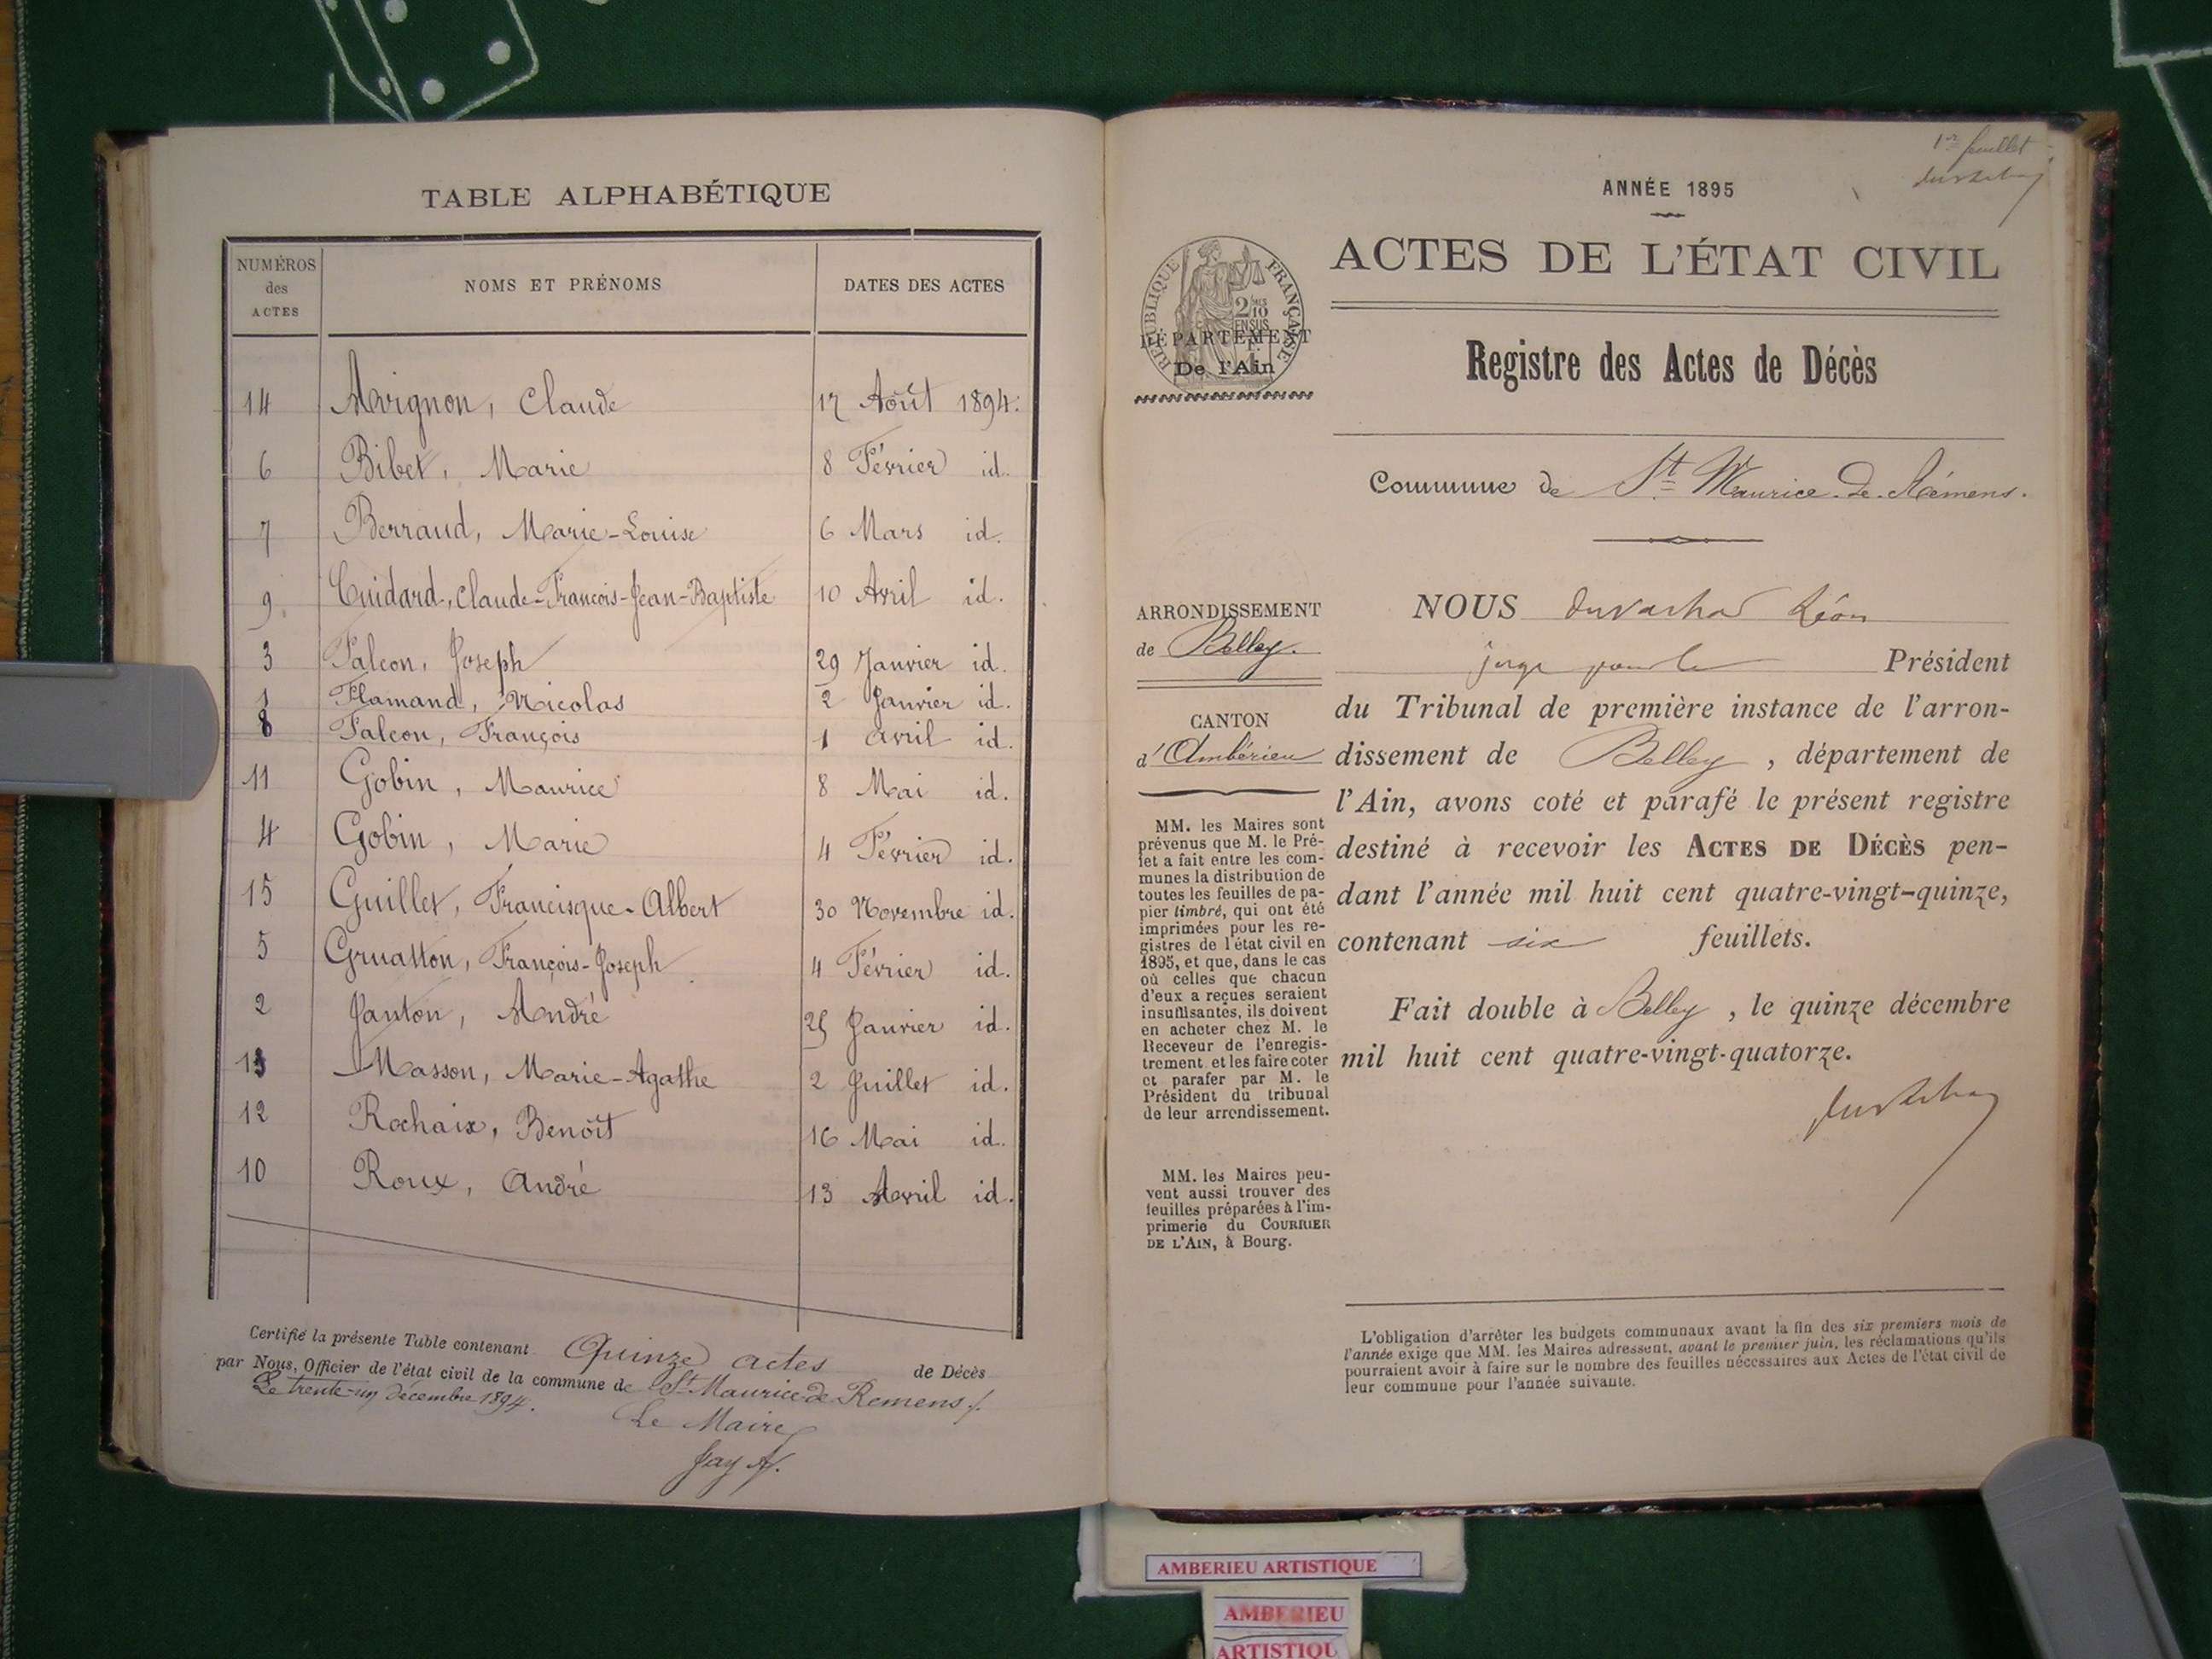 TABLE ALPHABÉTIQUE
NUMÉROS des ACTES | NOMS ET PRÉNOMS | DATES DES ACTES
14 | Avignon, Claude | 17 Août 1894.
6 | Bibet, Marie | 8 Février id.
7 | Berraud, Marie-Louise | 6 Mars id.
9. | Cuidard, Claude-François-Jean-Baptiste | 10 Avril id.
3 | Falcon, Joseph | 29 Janvier id.
1 | Flamand, Nicolas | 2 Janvier id.
8 | Falcon, François | 1 avril id.
11 | Gobin, Maurice | 8 Mai id.
4 | Gobin, Marie | 4 Février id.
15 | Guillet, Francisque-Albert | 30 Novembre id.
5 | Gruatton, François-Joseph | 4 Février id.
2 | Janton, André | 25 Janvier id.
13 | Masson, Marie-Agathe | 2 Juillet id.
12 | Rochaix, Benoît | 16 Mai id.
10 | Roux, André | 13 Avril id.
Certifié la présente Table contenant Quinze actes de Décès
par Nous, Officier de l'état civil de la commune de St Maurice de Remens
Le trente-un décembre 1894.
Le Maire
Jay
1er feuillet
ANNÉE 1895
ACTES DE L'ÉTAT CIVIL
RÉPUBLIQUE FRANÇAISE
2/10 EN SUS
DÉPARTEMENT
De l'Ain
Registre des Actes de Décès
Commune de St Maurice-de-Rémens.
ARRONDISSEMENT
de Belley.
CANTON
d'Ambérieu
MM. les Maires sont
prévenus que M. le Pré-
fet a fait entre les com-
munes la distribution de
toutes les feuilles de pa-
pier timbré, qui ont été
imprimées pour les re-
gistres de l'état civil en
1895, et que, dans le cas
où celles que chacun
d'eux a reçues seraient
insuffisantes, ils doivent
en acheter chez M. le
Receveur de l'enregis-
trement et les faire coter
et parafer par M. le
Président du tribunal
de leur arrondissement.
MM. les Maires peu-
vent aussi trouver des
feuilles préparées à l'im-
primerie du COURRIER
DE L'AIN, à Bourg.
NOUS Léon
juge pour le Président
du Tribunal de première instance de l'arron-
dissement de Belley, département de
l'Ain, avons coté et parafé le présent registre
destiné à recevoir les ACTES DE DÉCÈS pen-
dant l'année mil huit cent quatre-vingt-quinze,
contenant six feuillets.
Fait double à Belley, le quinze décembre
mil huit cent quatre-vingt-quatorze.
L'obligation d'arrêter les budgets communaux avant la fin des six premiers mois de
l'année exige que MM. les Maires adressent, avant le premier juin, les réclamations qu'ils
pourraient avoir à faire sur le nombre des feuilles nécessaires aux Actes de l'état civil de
leur commune pour l'année suivante.
AMBERIEU ARTISTIQUE
AMBERIEU
ARTISTIQU